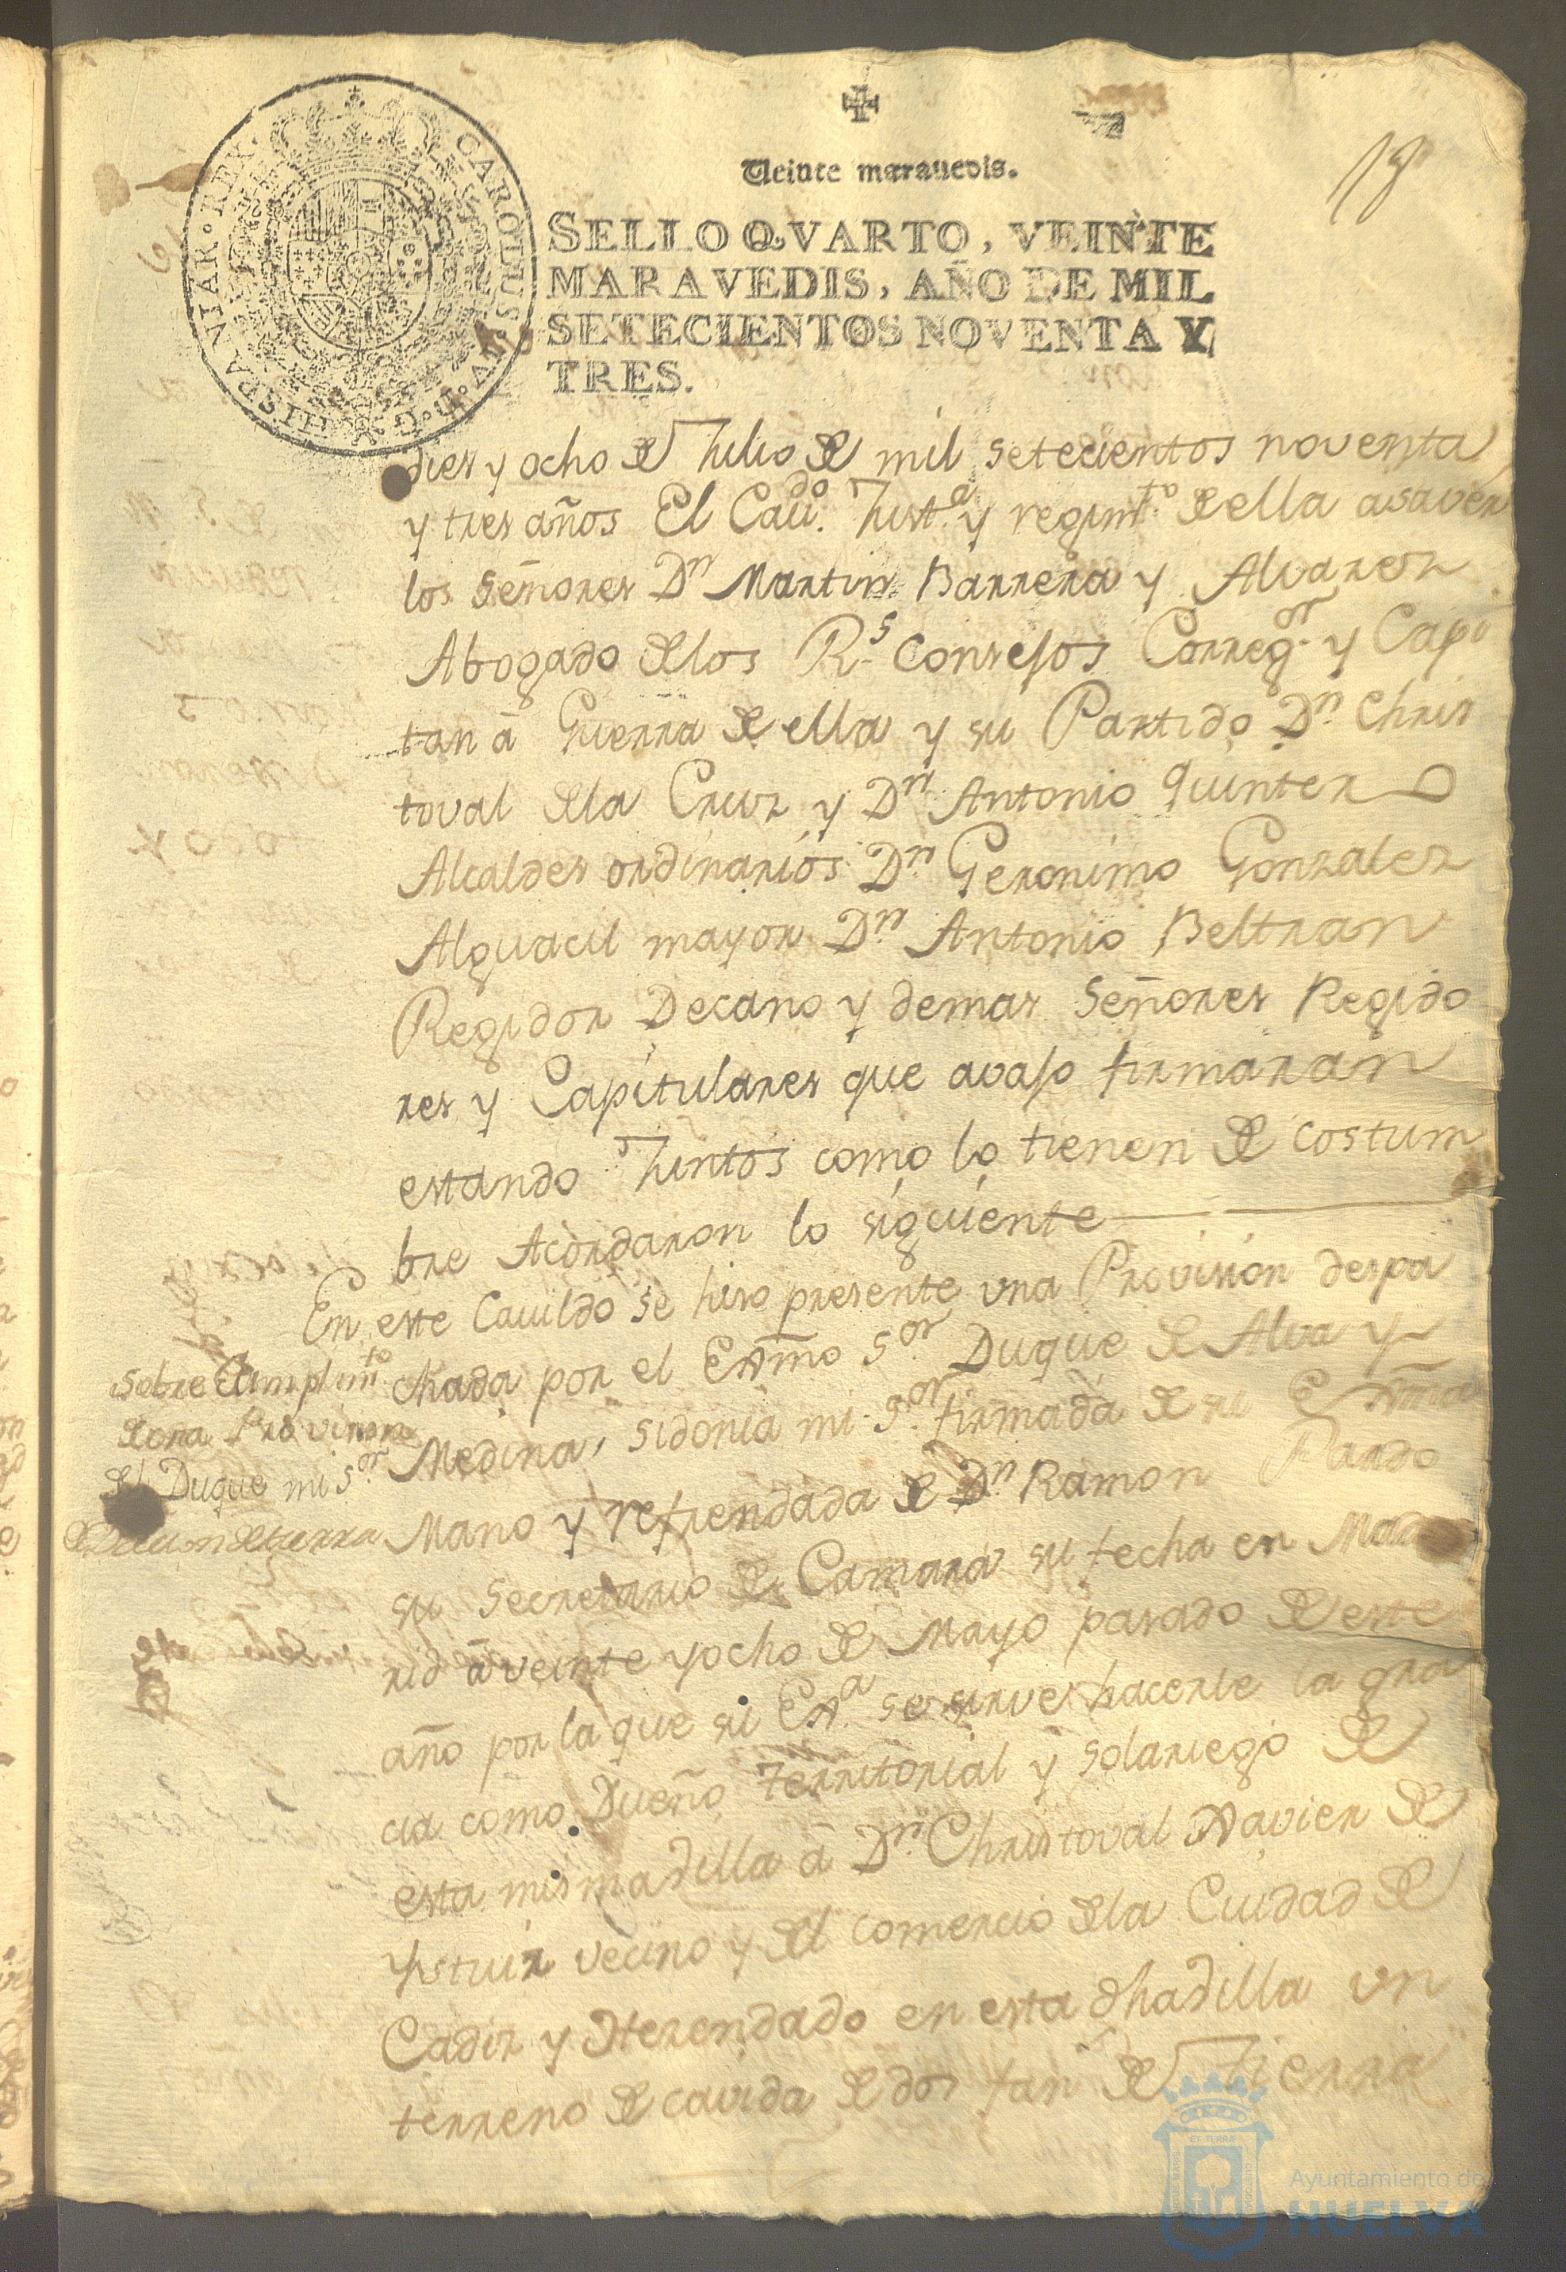 Veinte maravedis.
18
CAROLUS IV D G HISPANIAR REX
SELLO QVARTO, VEINTE
MARAVEDIS, AÑO DE MIL
SETECIENTOS NOVENTA Y
TRES.
dies y ocho de Julio de mil setecientos noventa
y tres años El Cavdo. Justa. y regimto. de ella asaver
los señores Dn Martin Barrera y Alvarez
Abogado de los Rs. Consejos Corregor. y Capi
tan â Guerra de ella y su Partido Dn. Chris
toval de la Cruz y Dn Antonio Quintero
Alcaldes ordinarios Dn. Geronimo Gonzalez
Alguacil mayor Dn. Antonio Beltran
Regidor Decano y demas Señores Regido
res y Capitulares que avajo firmaran
estando Juntos como lo tienen de costum
bre Acordaron lo siguiente
En este Cavildo se hiso presente una Provision despa
chada por el Exmo Sor. Duque de Alva y
Medina, sidonia mi Sor. firmada de su Exma
Mano y refrendada de Dn. Ramon Pardo
su Secretario de Camara su fecha en Mad
rid â veinte y ocho de Mayo pasado de este
año por la que su Exa. se sirve hacerle la gra
cia como Dueño Territorial y Solariego de
esta misma dilla â Dn. Christoval Xavier de
Ysturiz vecino y del comercio de la Ciudad de
Cadiz y Herendado en esta dha dilla un
terreno de cavida de dos fan de Tierra
sobre Cumplimto
de una Provision
del Duque mi Sor.
de tierra
Ayuntamiento de
HUELVA